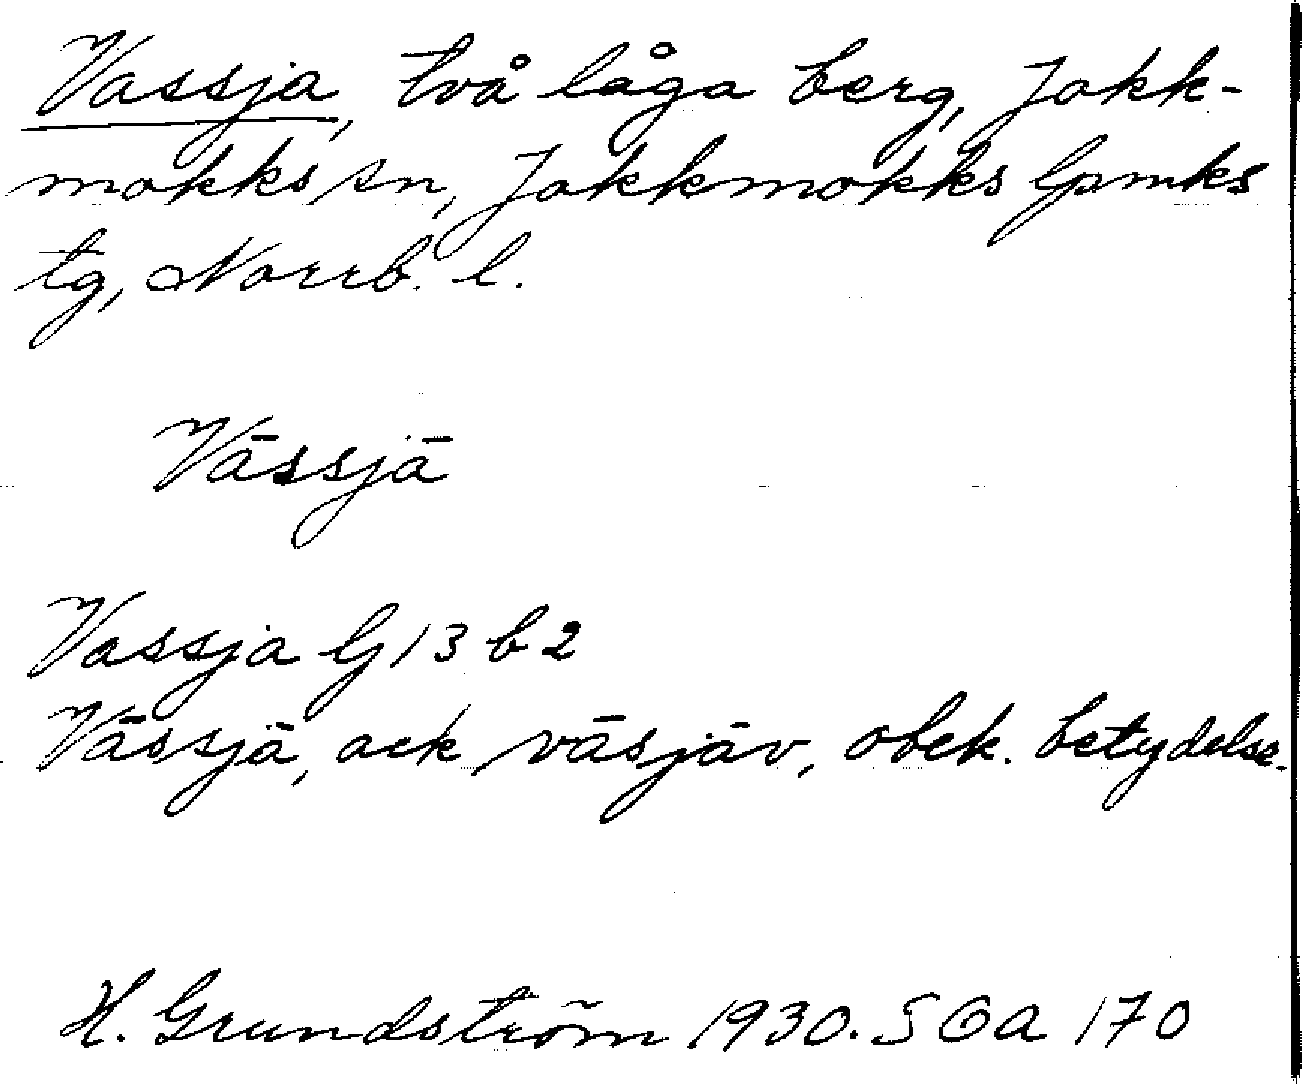 Vassja, två låga berg, Jokk-
mokks sn, Jokkmokks lpmks
tg, Norrb. l.
Vāssjā
Vassja G 13 b 2
Vāssjā, ack vāsjāv, obek. betydelse.
H. Grundström 1930. SOA 170